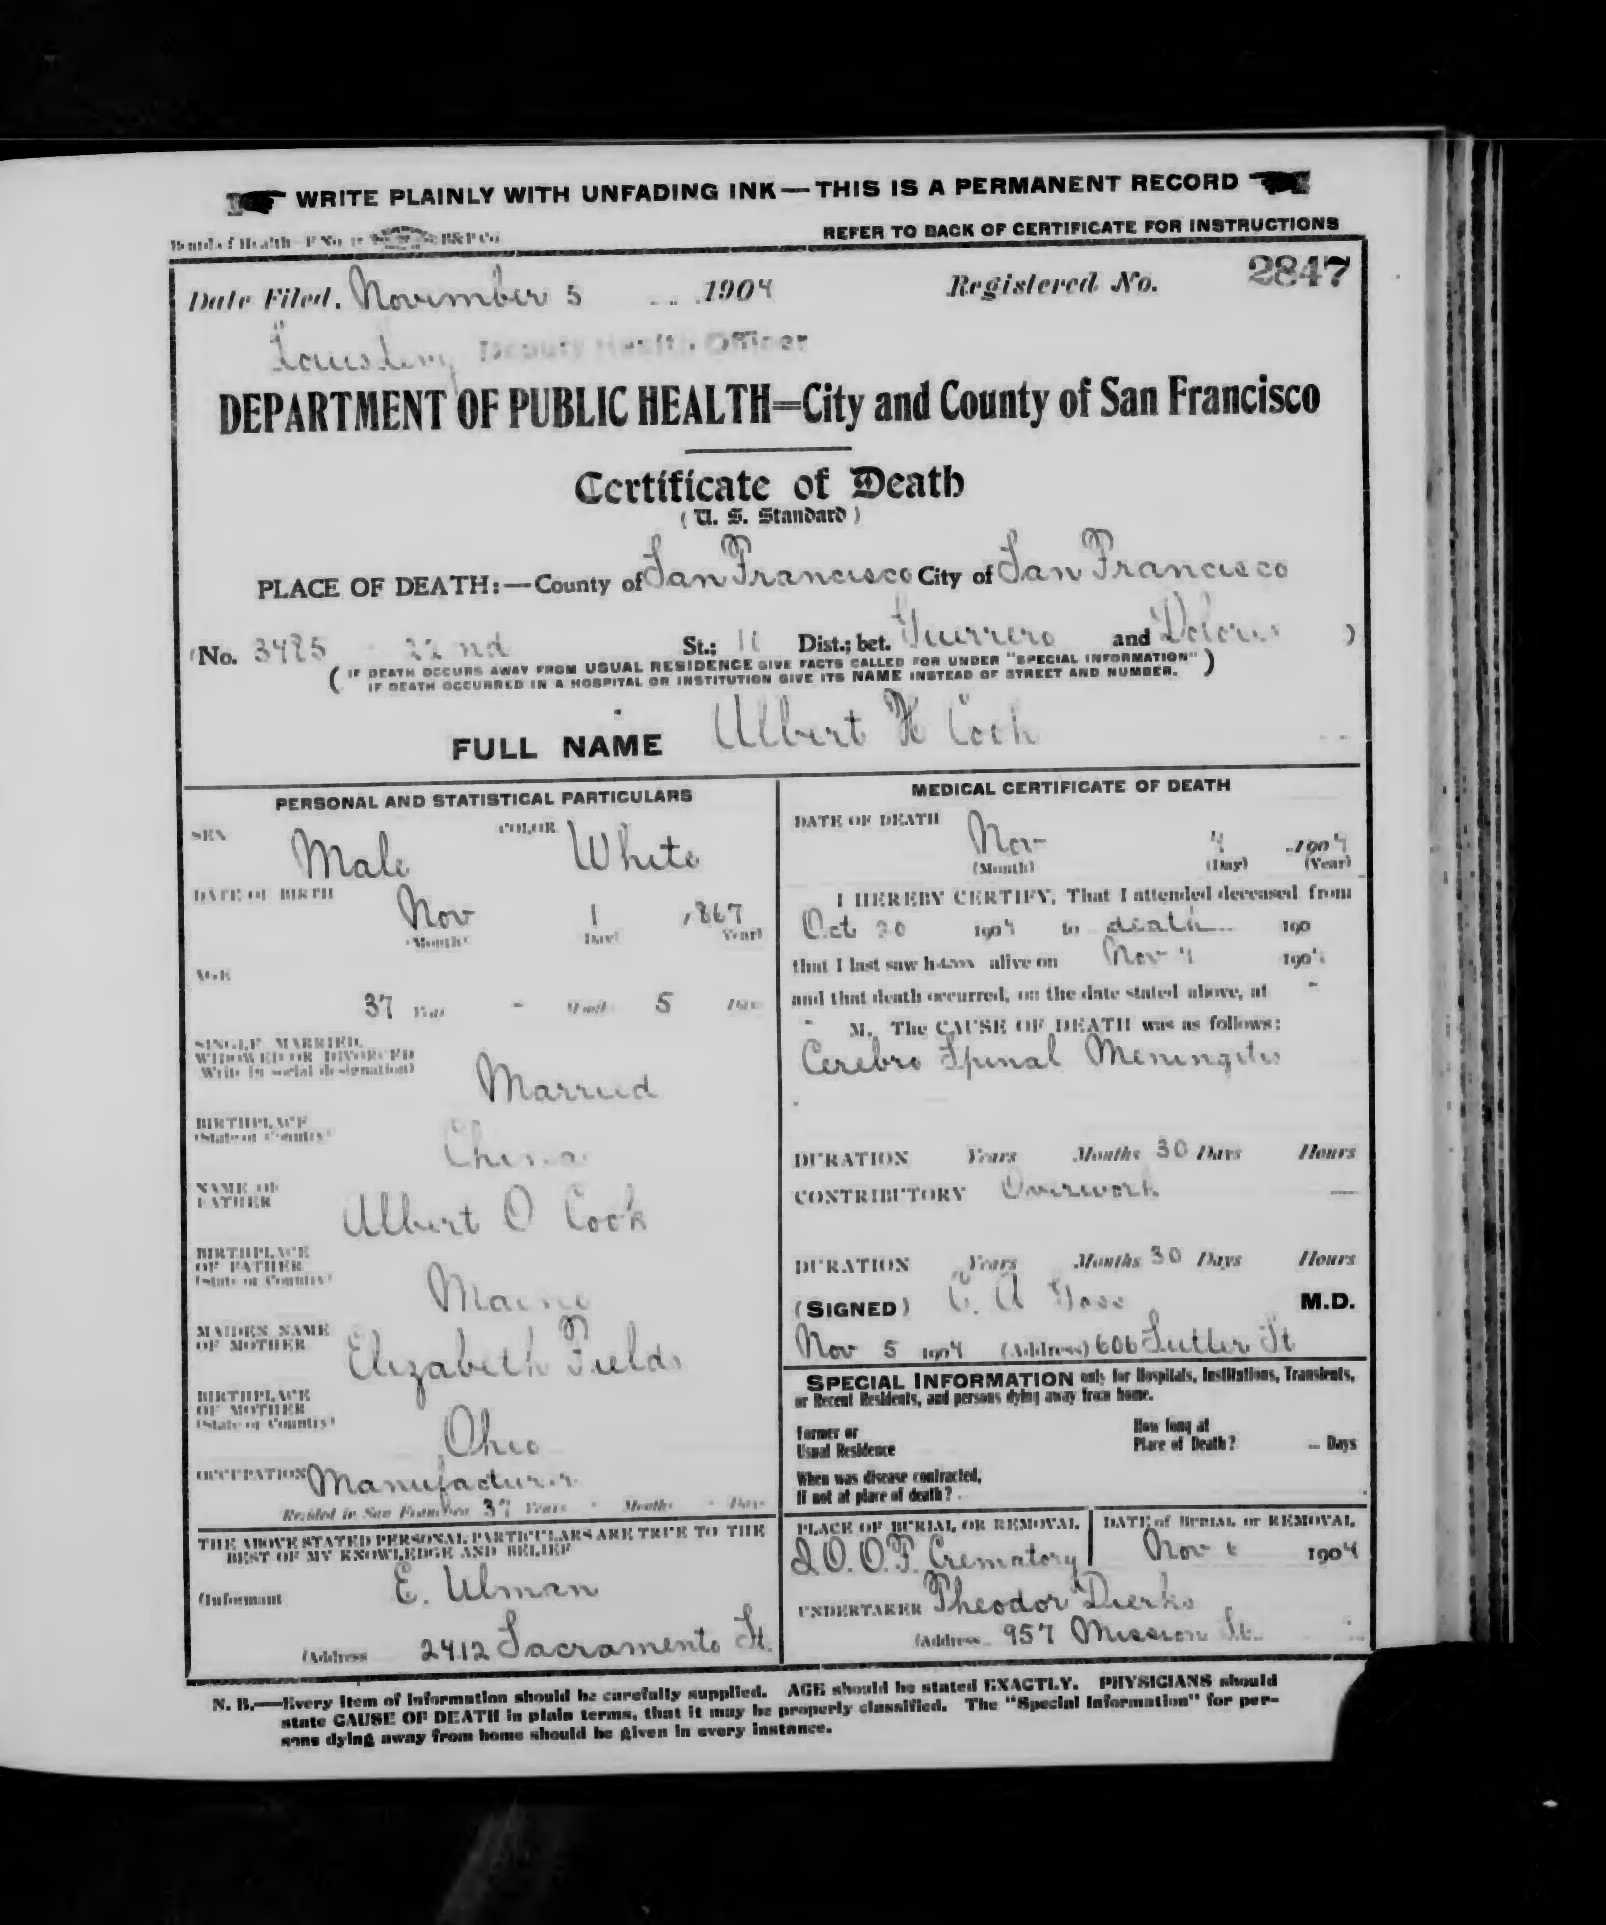 WRITE PLAINLY WITH UNFADING INK — THIS IS A PERMANENT RECORD
Board of Health—F No. B&P Co
REFER TO BACK OF CERTIFICATE FOR INSTRUCTIONS
Date Filed, November 5 1904 Registered No. 2847
Deputy Health Officer
DEPARTMENT OF PUBLIC HEALTH=City and County of San Francisco
Certificate of Death
( U. S. Standard )
PLACE OF DEATH:—County of San Francisco City of San Francisco
(No. 3485 22nd St.; 11 Dist.; bet. Guerrero and Dolores )
( IF DEATH OCCURS AWAY FROM USUAL RESIDENCE GIVE FACTS CALLED FOR UNDER "SPECIAL INFORMATION" )
IF DEATH OCCURRED IN A HOSPITAL OR INSTITUTION GIVE ITS NAME INSTEAD OF STREET AND NUMBER.
FULL NAME Albert H Cook
PERSONAL AND STATISTICAL PARTICULARS
SEX Male COLOR White
DATE OF BIRTH Nov 1 1867
(Month) (Day) (Year)
AGE
37 Years - Months 5 Days
SINGLE, MARRIED,
WIDOWED OR DIVORCED
(Write in social designation) Married
BIRTHPLACE
(State or Country) China
NAME OF
FATHER Albert O Cook
BIRTHPLACE
OF FATHER
(State or Country) Maine
MAIDEN NAME
OF MOTHER Elizabeth Fields
BIRTHPLACE
OF MOTHER
(State or Country) Ohio
OCCUPATION Manufacturer
Resided in San Francisco 37 Years - Months - Days
THE ABOVE STATED PERSONAL PARTICULARS ARE TRUE TO THE
BEST OF MY KNOWLEDGE AND BELIEF
(Informant E. Ulman
(Address 2412 Sacramento St.
MEDICAL CERTIFICATE OF DEATH
DATE OF DEATH Nov 4 1904
(Month) (Day) (Year)
I HEREBY CERTIFY, That I attended deceased from
Oct 20 1904 to death 190
that I last saw him alive on Nov 4 1904
and that death occurred, on the date stated above, at -
- M. The CAUSE OF DEATH was as follows:
Cerebro Spinal Meningitis
DURATION Years Months 30 Days Hours
CONTRIBUTORY Overwork
DURATION Years Months 30 Days Hours
(SIGNED) C. A Goss M.D.
Nov 5 1904 (Address) 606 Sutter St
SPECIAL INFORMATION only for Hospitals, Institutions, Transients,
or Recent Residents, and persons dying away from home.
Former or
Usual Residence
How long at
Place of Death? Days
When was disease contracted,
If not at place of death?
PLACE OF BURIAL OR REMOVAL DATE of BURIAL or REMOVAL
I.O.O.F. Crematory Nov 6 1904
UNDERTAKER Theodor Dierks
(Address 957 Mission St.
N. B.—Every item of information should be carefully supplied. AGE should be stated EXACTLY. PHYSICIANS should
state CAUSE OF DEATH in plain terms, that it may be properly classified. The "Special Information" for per-
sons dying away from home should be given in every instance.